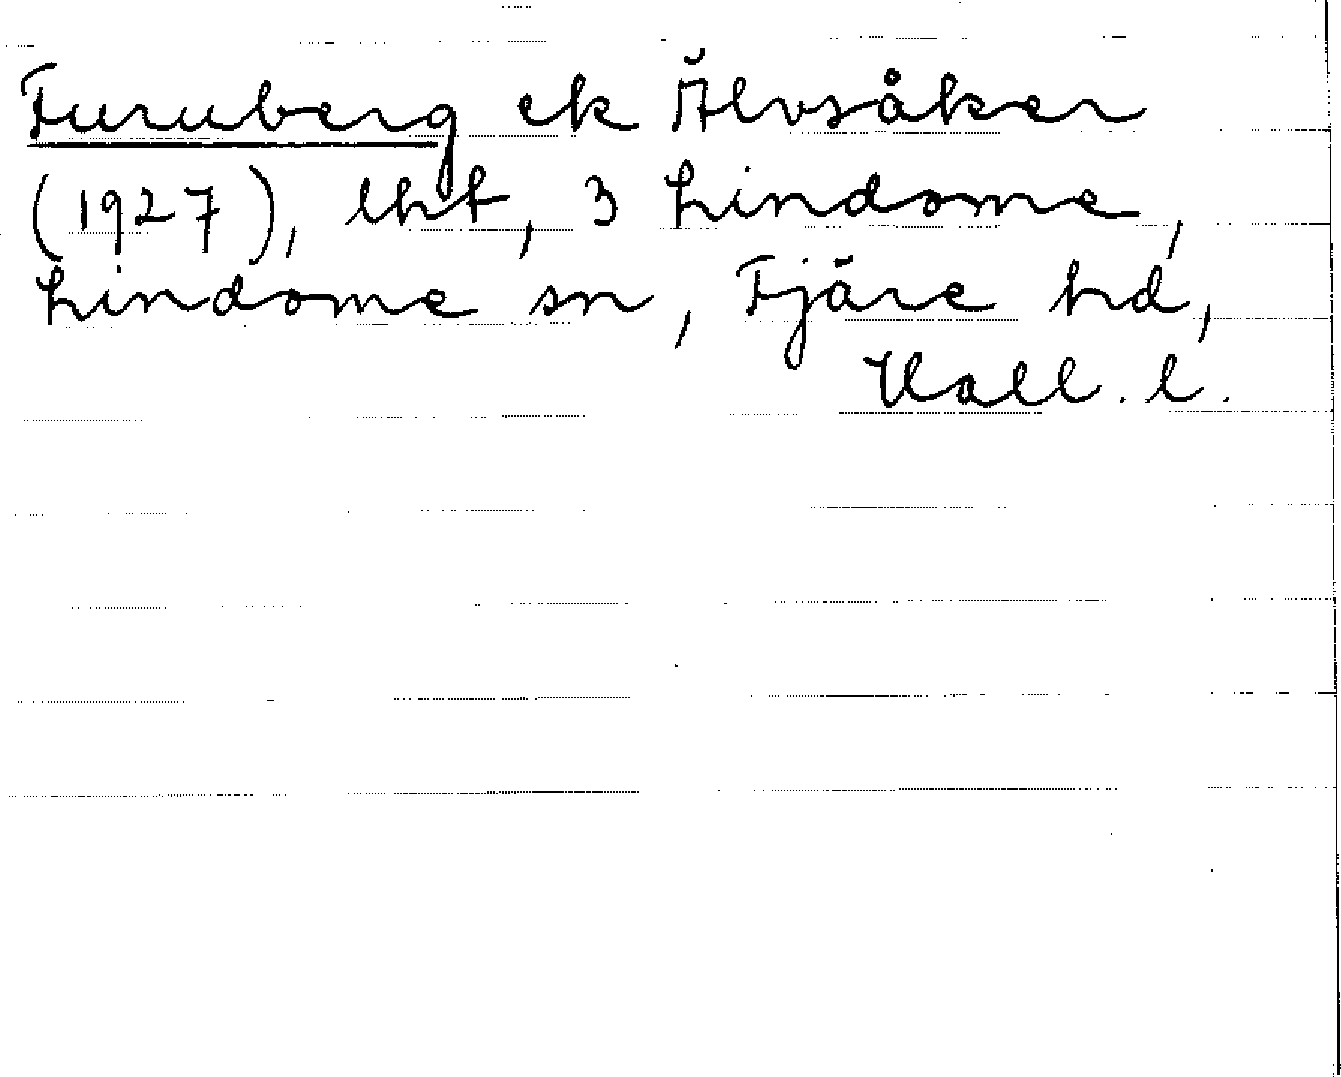 Furuberg ek Älvsåker
(1927), lht, 3 Lindome,
Lindome sn, Fjäre hd,
Hall. l.